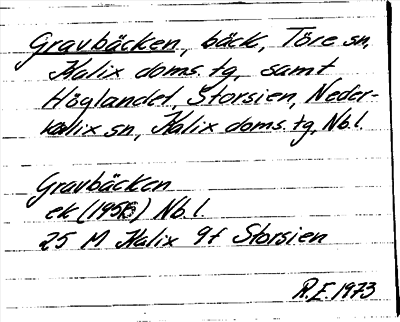 Gravbäcken, bäck, Töre sn,
Kalix doms. tg, samt
Höglandet, Storsien, Neder-
kalix sn, Kalix doms. tg, Nb. l.
Gravbäcken
ek (1956) Nb. l.
25 M Kalix 9f Storsien
R.E. 1973